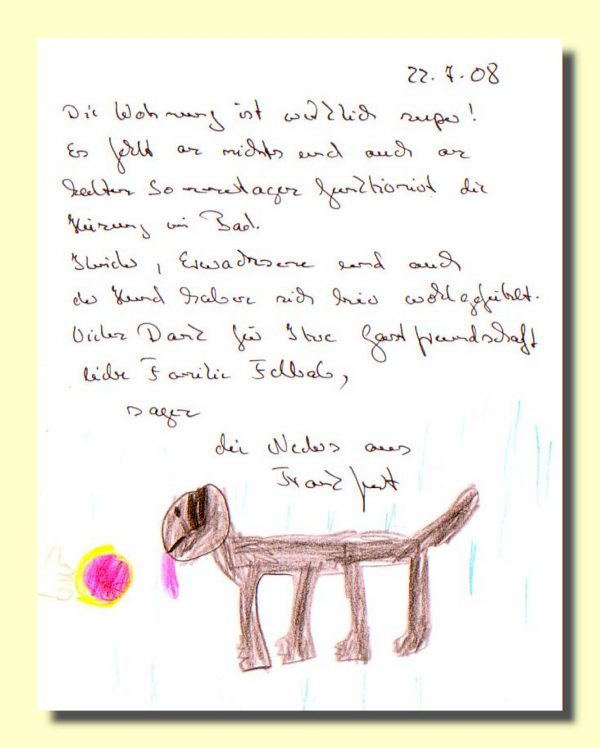 22.7.08
Die Wohnung ist wirklich super!
Es fehlt an nichts und auch an
kalten Sommertagen funktioniert die
Heizung im Bad.
Kinder, Erwachsene und auch
der Hund haben sich hier wohlgefühlt.
Vielen Dank für Ihre Gastfreundschaft
liebe Familie
sagen
die aus
Frankfurt